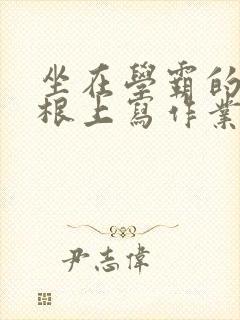 坐在學霸的
根上寫作業
尹志偉